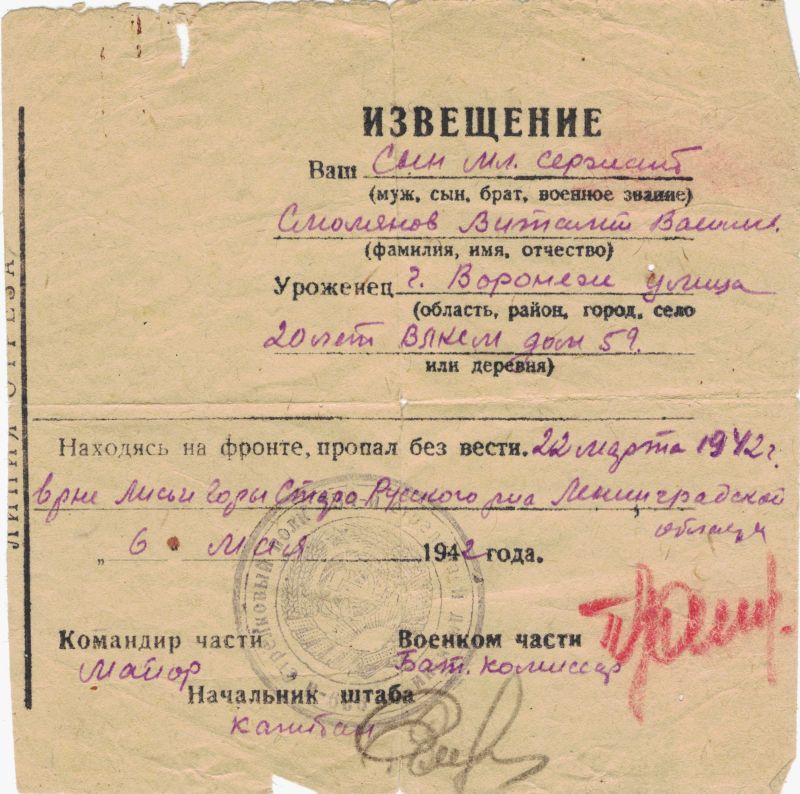 ИЗВЕЩЕНИЕ
Ваш Сын мл. сержант
(муж, сын, брат, военное звание)
Смолянов Виталий Васильев.
(фамилия, имя, отчество)
Уроженец г. Воронеж улица
(область, район, город, село
20 лет ВЛКСМ дом 59.
или деревня)
Находясь на фронте, пропал без вести. 22 марта 1942 г.
в рне Лисьи Горы Старо Русского рна Ленинградской
области
„ 6 мая 1942 года.
Командир части Военком части
Майор Бат. комиссар
Начальник штаба
капитан
ЛИНИЯ ОТРЕЗА
стрелковый полк